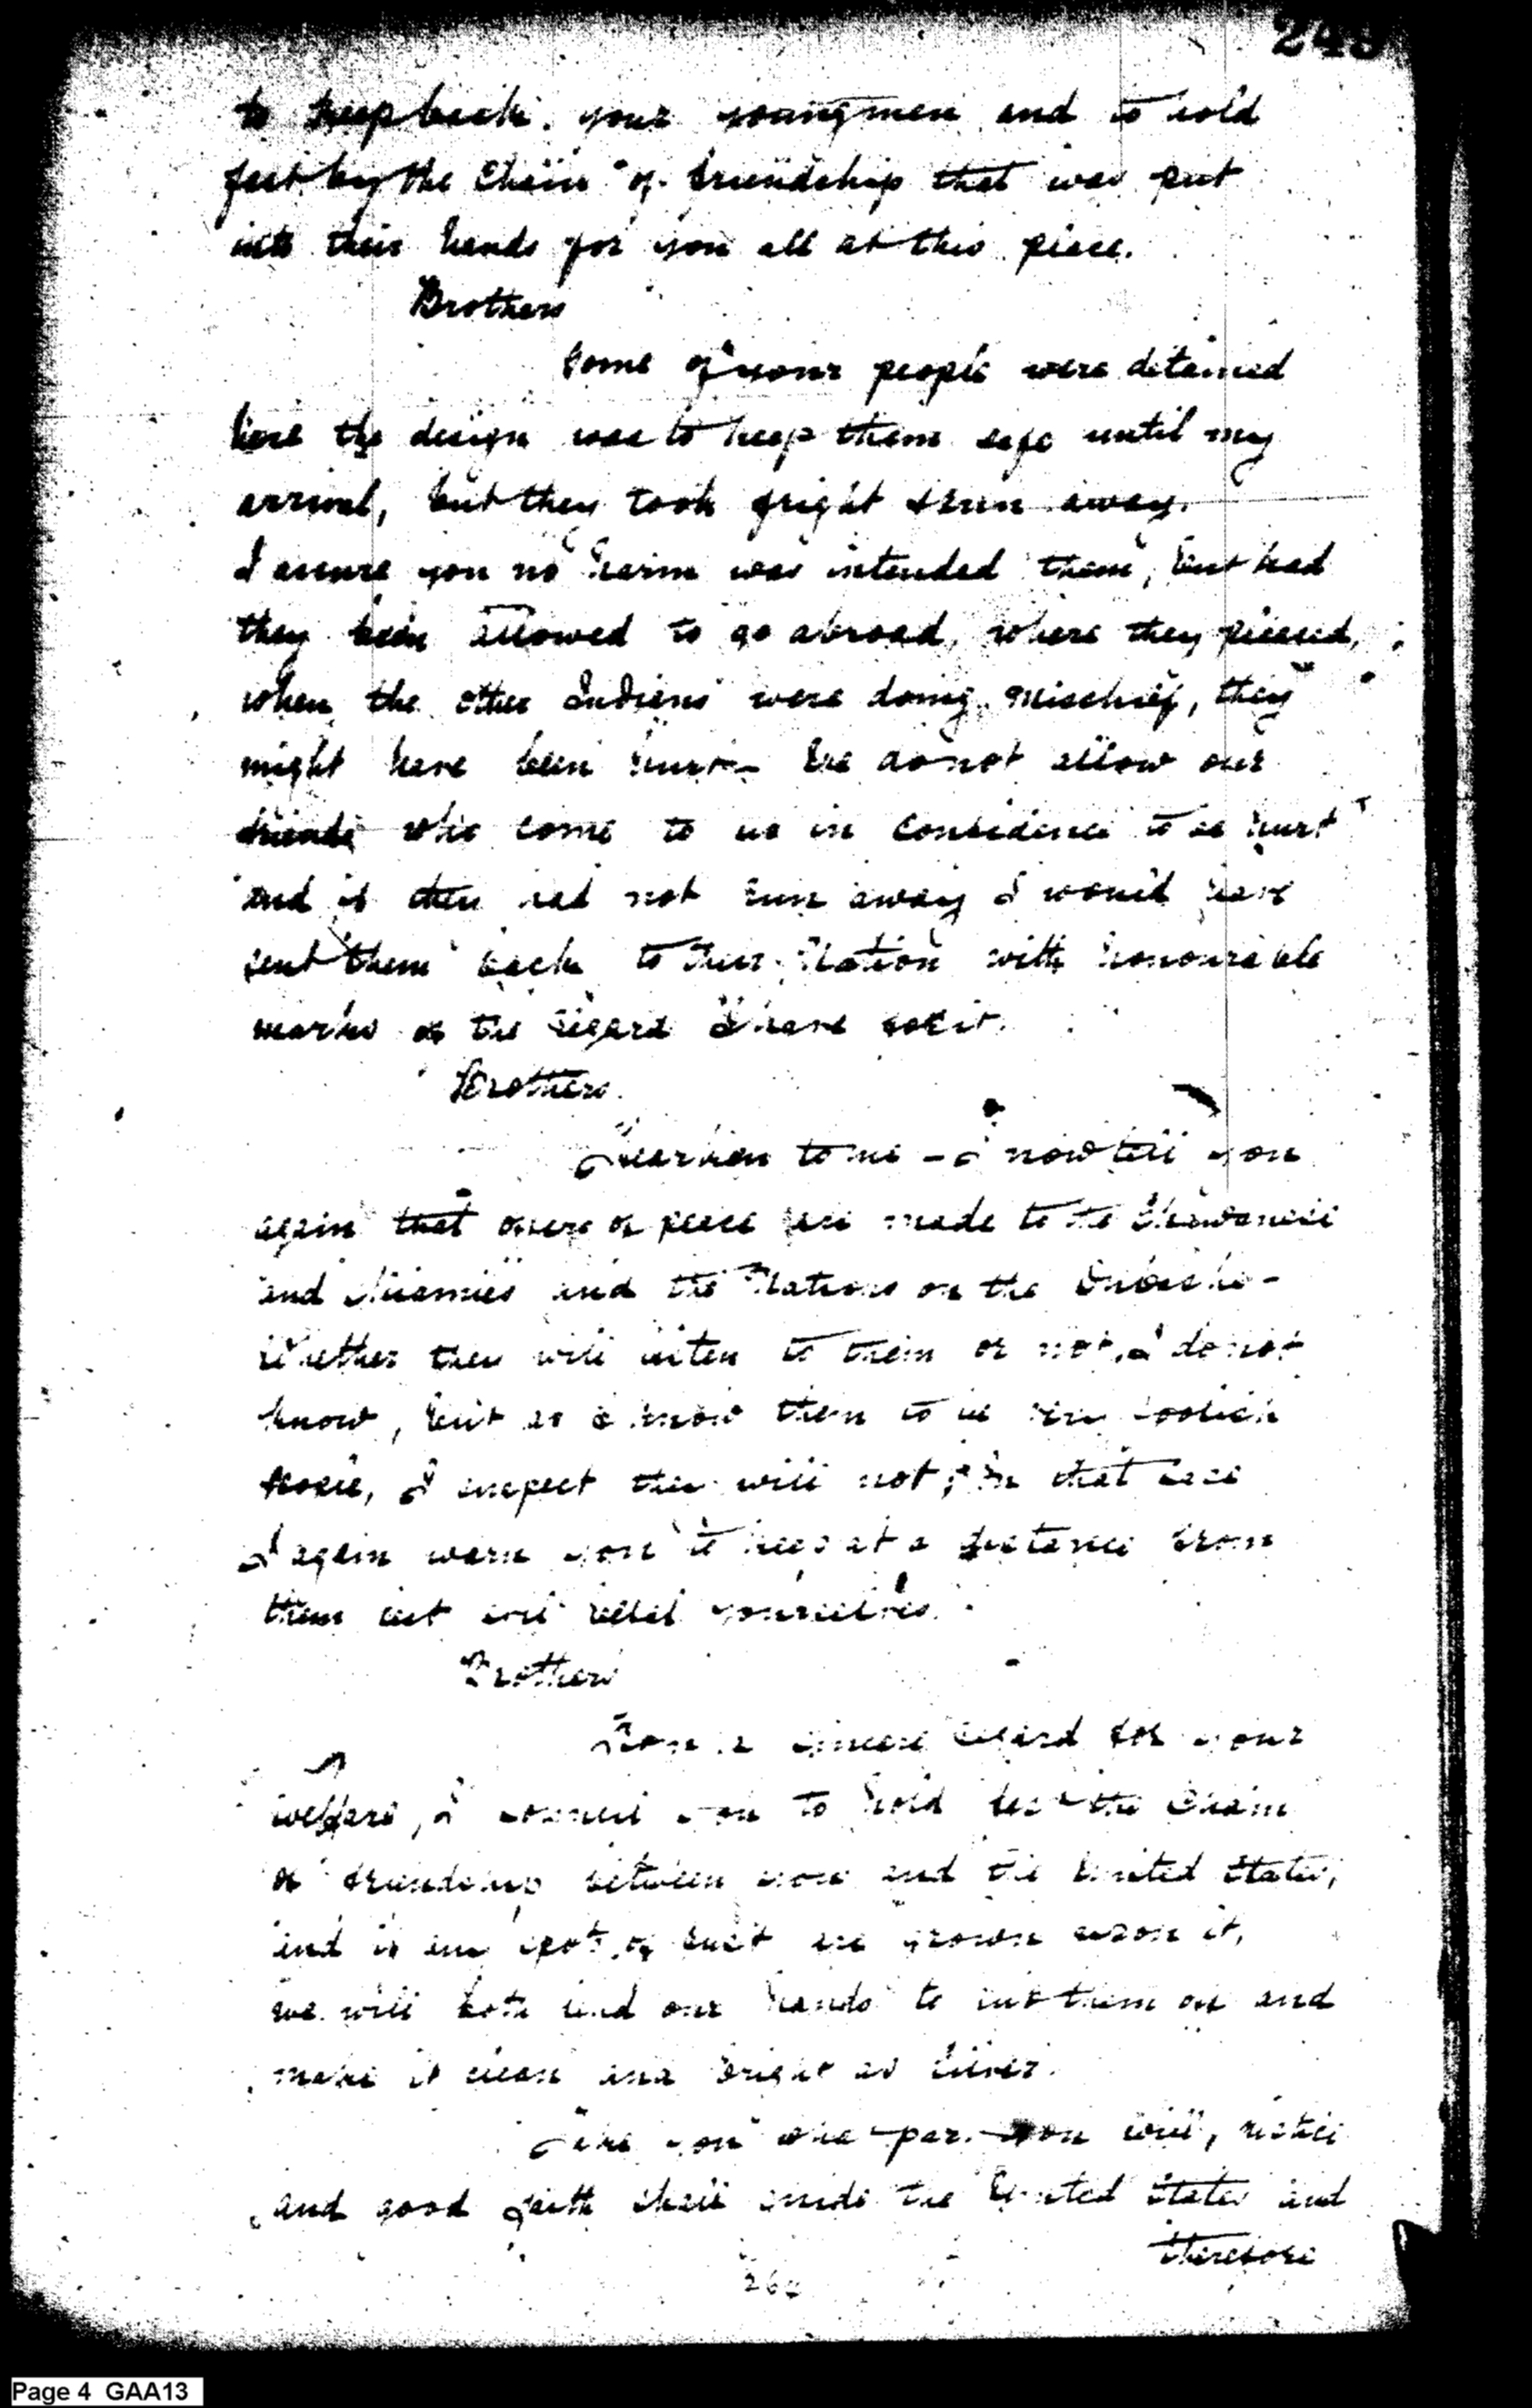 248
to keep back your young men and to hold
fast by the Chain of friendship that was put
into their hands for you all at this place.
Brothers
Some of your people were detained
here the design was to keep them safe until my
arrival, but they took fright & run away.
I assure you no harm was intended them, but had
they been allowed to go abroad, where they pleased,
when the other Indians were doing mischief, they
might have been hurt – We do not allow our
friends who come to us in confidence to be hurt
and if they had not run away I would have
sent them back to their Nation with honourable
marks of the regard I have for it.
Brothers.
Hearken to me – I now tell you
again that offers of peace are made to the Shawanese
and Miamies and the Nations on the Oubache –
Whether they will listen to them or not, I do not
know, but as I know them to be very foolish
People, I suspect they will not; In that case
I again warn you to keep at a distance from
them lest evil befal yourselves.
Brothers
From a sincere regard for your
welfare, I council you to hold fast the Chain
of friendship between you and the United States,
and if any spots of rust are grown upon it,
we will both lend our hands to rub them off and
make it clean and bright as silver.
Take you what part you will, justice
and good faith shall guide the United States and
therefore
Page 4 GAA13